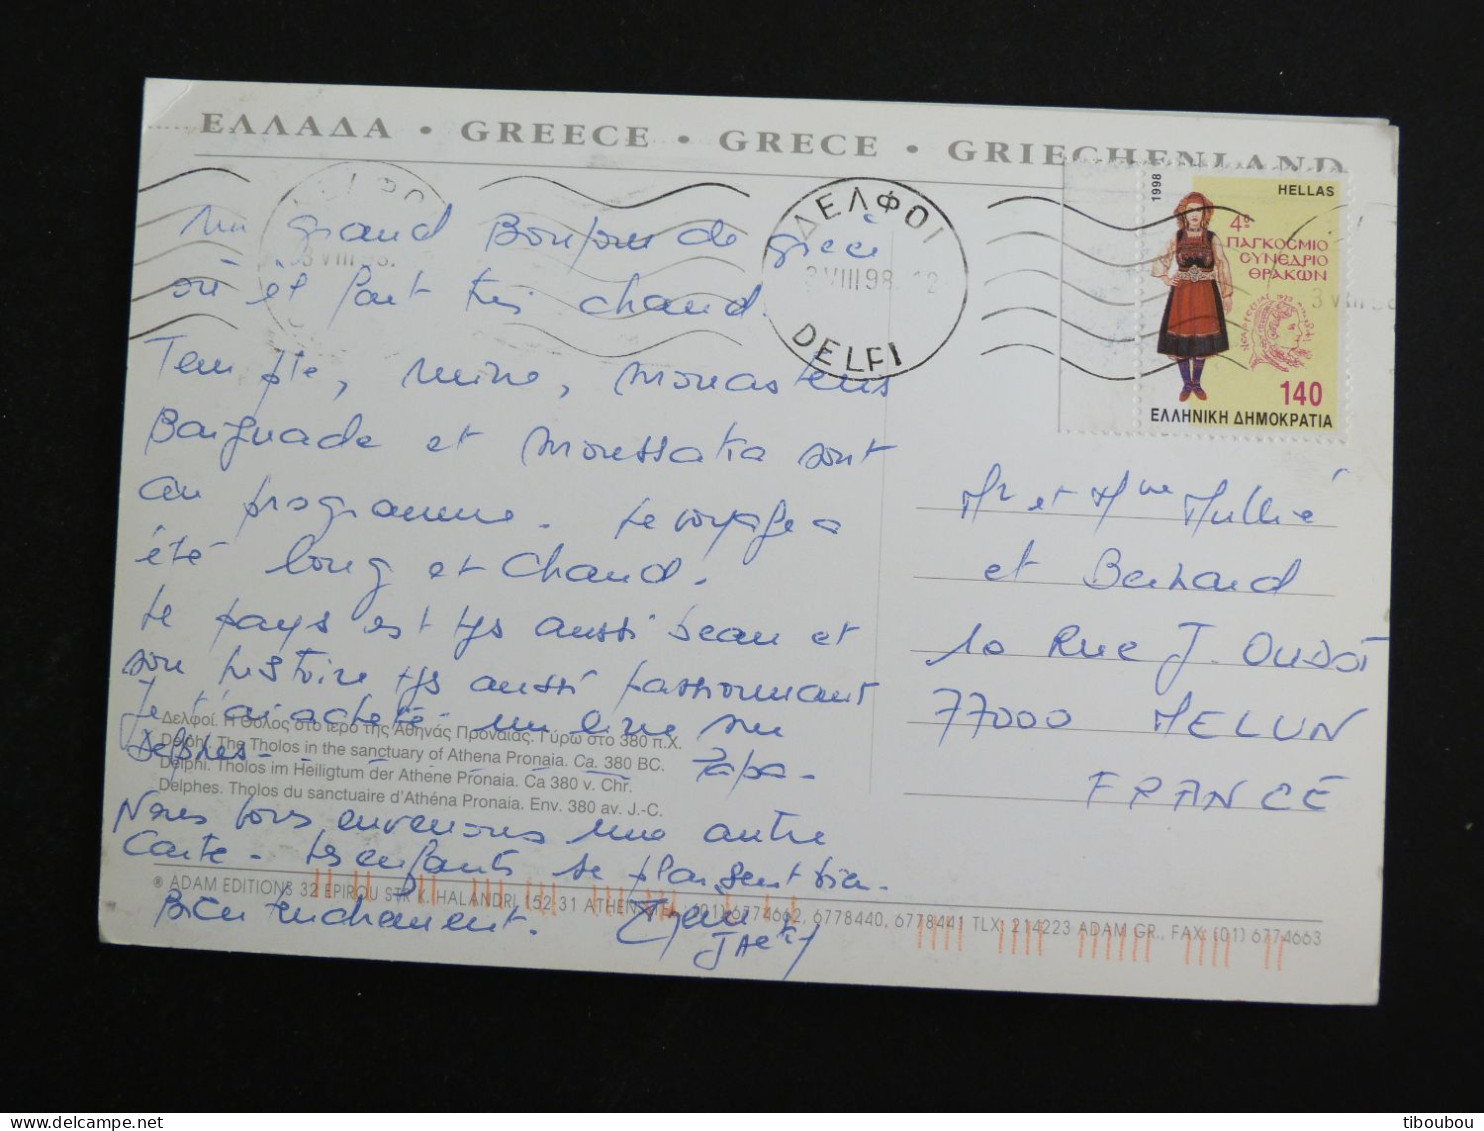 ΕΛΛΑΔΑ • GREECE • GRECE • GRIECHENLAND
ΔΕΛΦΟΙ
3 VIII 98. 12
DELFI
1998
HELLAS
4ο
ΠΑΓΚΟΣΜΙΟ
ΣΥΝΕΔΡΙΟ
ΘΡΑΚΩΝ
140
ΕΛΛΗΝΙΚΗ ΔΗΜΟΚΡΑΤΙΑ
Un grand Bonjour de grèce
où il fait très chaud.
Temple, ruine, monastères
Baignade et moussaka sont
au programme. Le voyage a
été long et chaud.
Le pays est tjs aussi beau et
son histoire tjs aussi passionnant
Je t'ai acheté un livre sur
Delphes - Papa -
Nous vous enverrons une autre
Carte - Les enfants se plaisent bien.
Bien tendrement.
Δελφοί. Η Θόλος στο ιερό της Αθηνάς Προναίας. Γύρω στο 380 π.Χ.
Delphi. The Tholos in the sanctuary of Athena Pronaia. Ca. 380 BC.
Delphi. Tholos im Heiligtum der Athene Pronaia. Ca 380 v. Chr.
Delphes. Tholos du sanctuaire d'Athéna Pronaia. Env. 380 av. J.-C.
® ADAM EDITIONS 32 EPIROU STR K. HALANDRI, 152 31 ATHENS TEL. (01) 6774662, 6778440, 6778441 TLX: 214223 ADAM GR., FAX: (01) 6774663
Mr et Mme Mullié
et Bernard
10 Rue J. OUDOT
77000 MELUN
FRANCE
tiboubou / delcampe.net